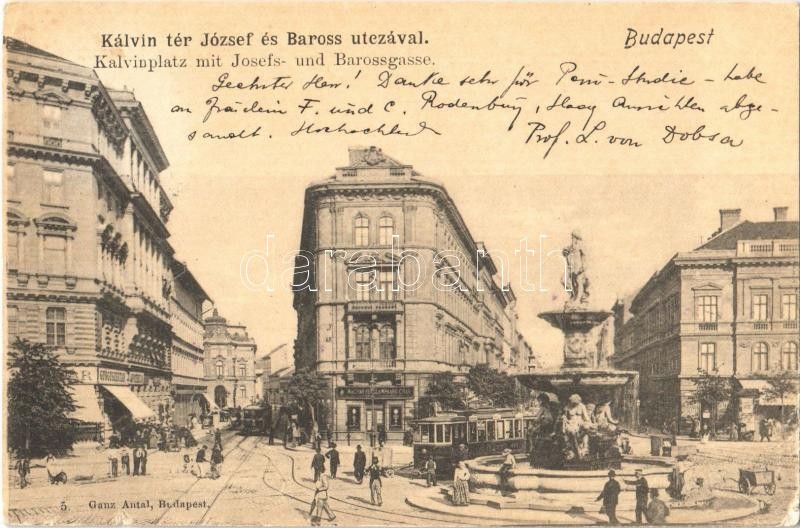 Kálvin tér József és Baross utczával.
Budapest
Kalvinplatz mit Josefs- und Barossgasse.
Geehrter Herr! Danke sehr für - habe
an Fräulein F. und C. Rodenburg, Haag abge-
sandt. Hochachtend Prof. L. von Dobsa
darabanth
5. Ganz Antal, Budapest.